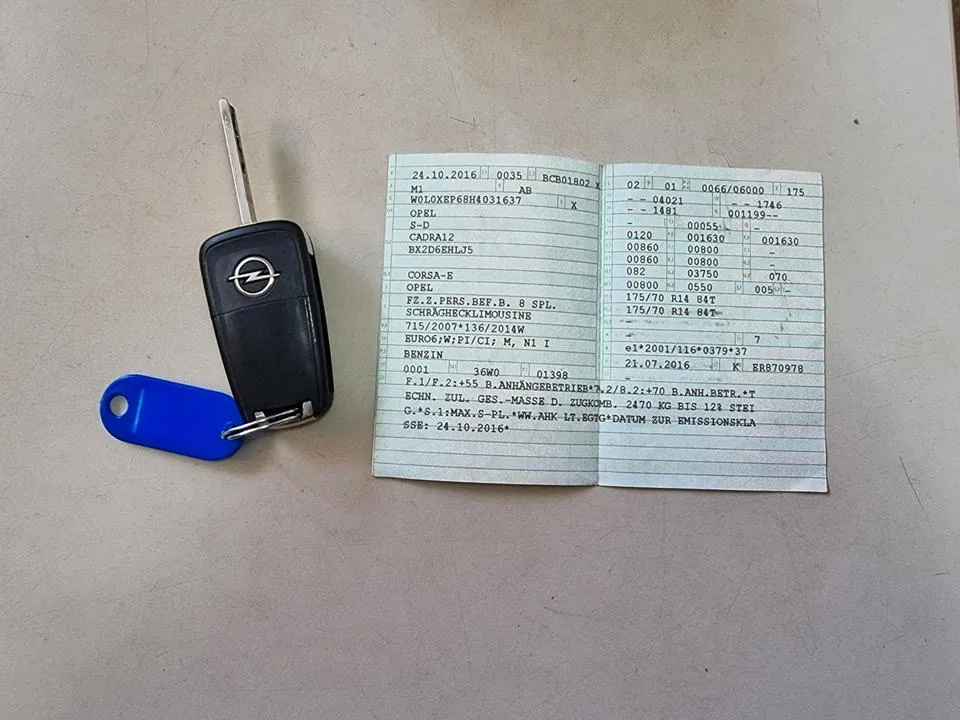 24.10.2016 0035 BCB01802 X
M1 AB
W0L0XEP68H4031637 X
OPEL
S-D
CADRA12
BX2D6EHLJ5
CORSA-E
OPEL
FZ.Z.PERS.BEF.B. 8 SPL.
SCHRÄGHECKLIMOUSINE
715/2007*136/2014W
EURO6;W;PI/CI; M, N1 I
BENZIN
0001 36W0 01398
02 01 0066/06000 175
- - 04021 - - 1746
- - 1481 001199--
- 00055 -
0120 001630 001630
00860 00800 -
00860 00800 -
082 03750 070
00800 0550 005 -
175/70 R14 84T
175/70 R14 84T
-
- 7
e1*2001/116*0379*37
21.07.2016 K ER870978
-
F.1/F.2:+55 B.ANHÄNGEBETRIEB*7.2/8.2:+70 B.ANH.BETR.*T
ECHN. ZUL. GES.-MASSE D. ZUGKOMB. 2470 KG BIS 12% STEI
G.*S.1:MAX.S-PL.*WW.AHK LT.EGTG*DATUM ZUR EMISSIONSKLA
SSE: 24.10.2016*